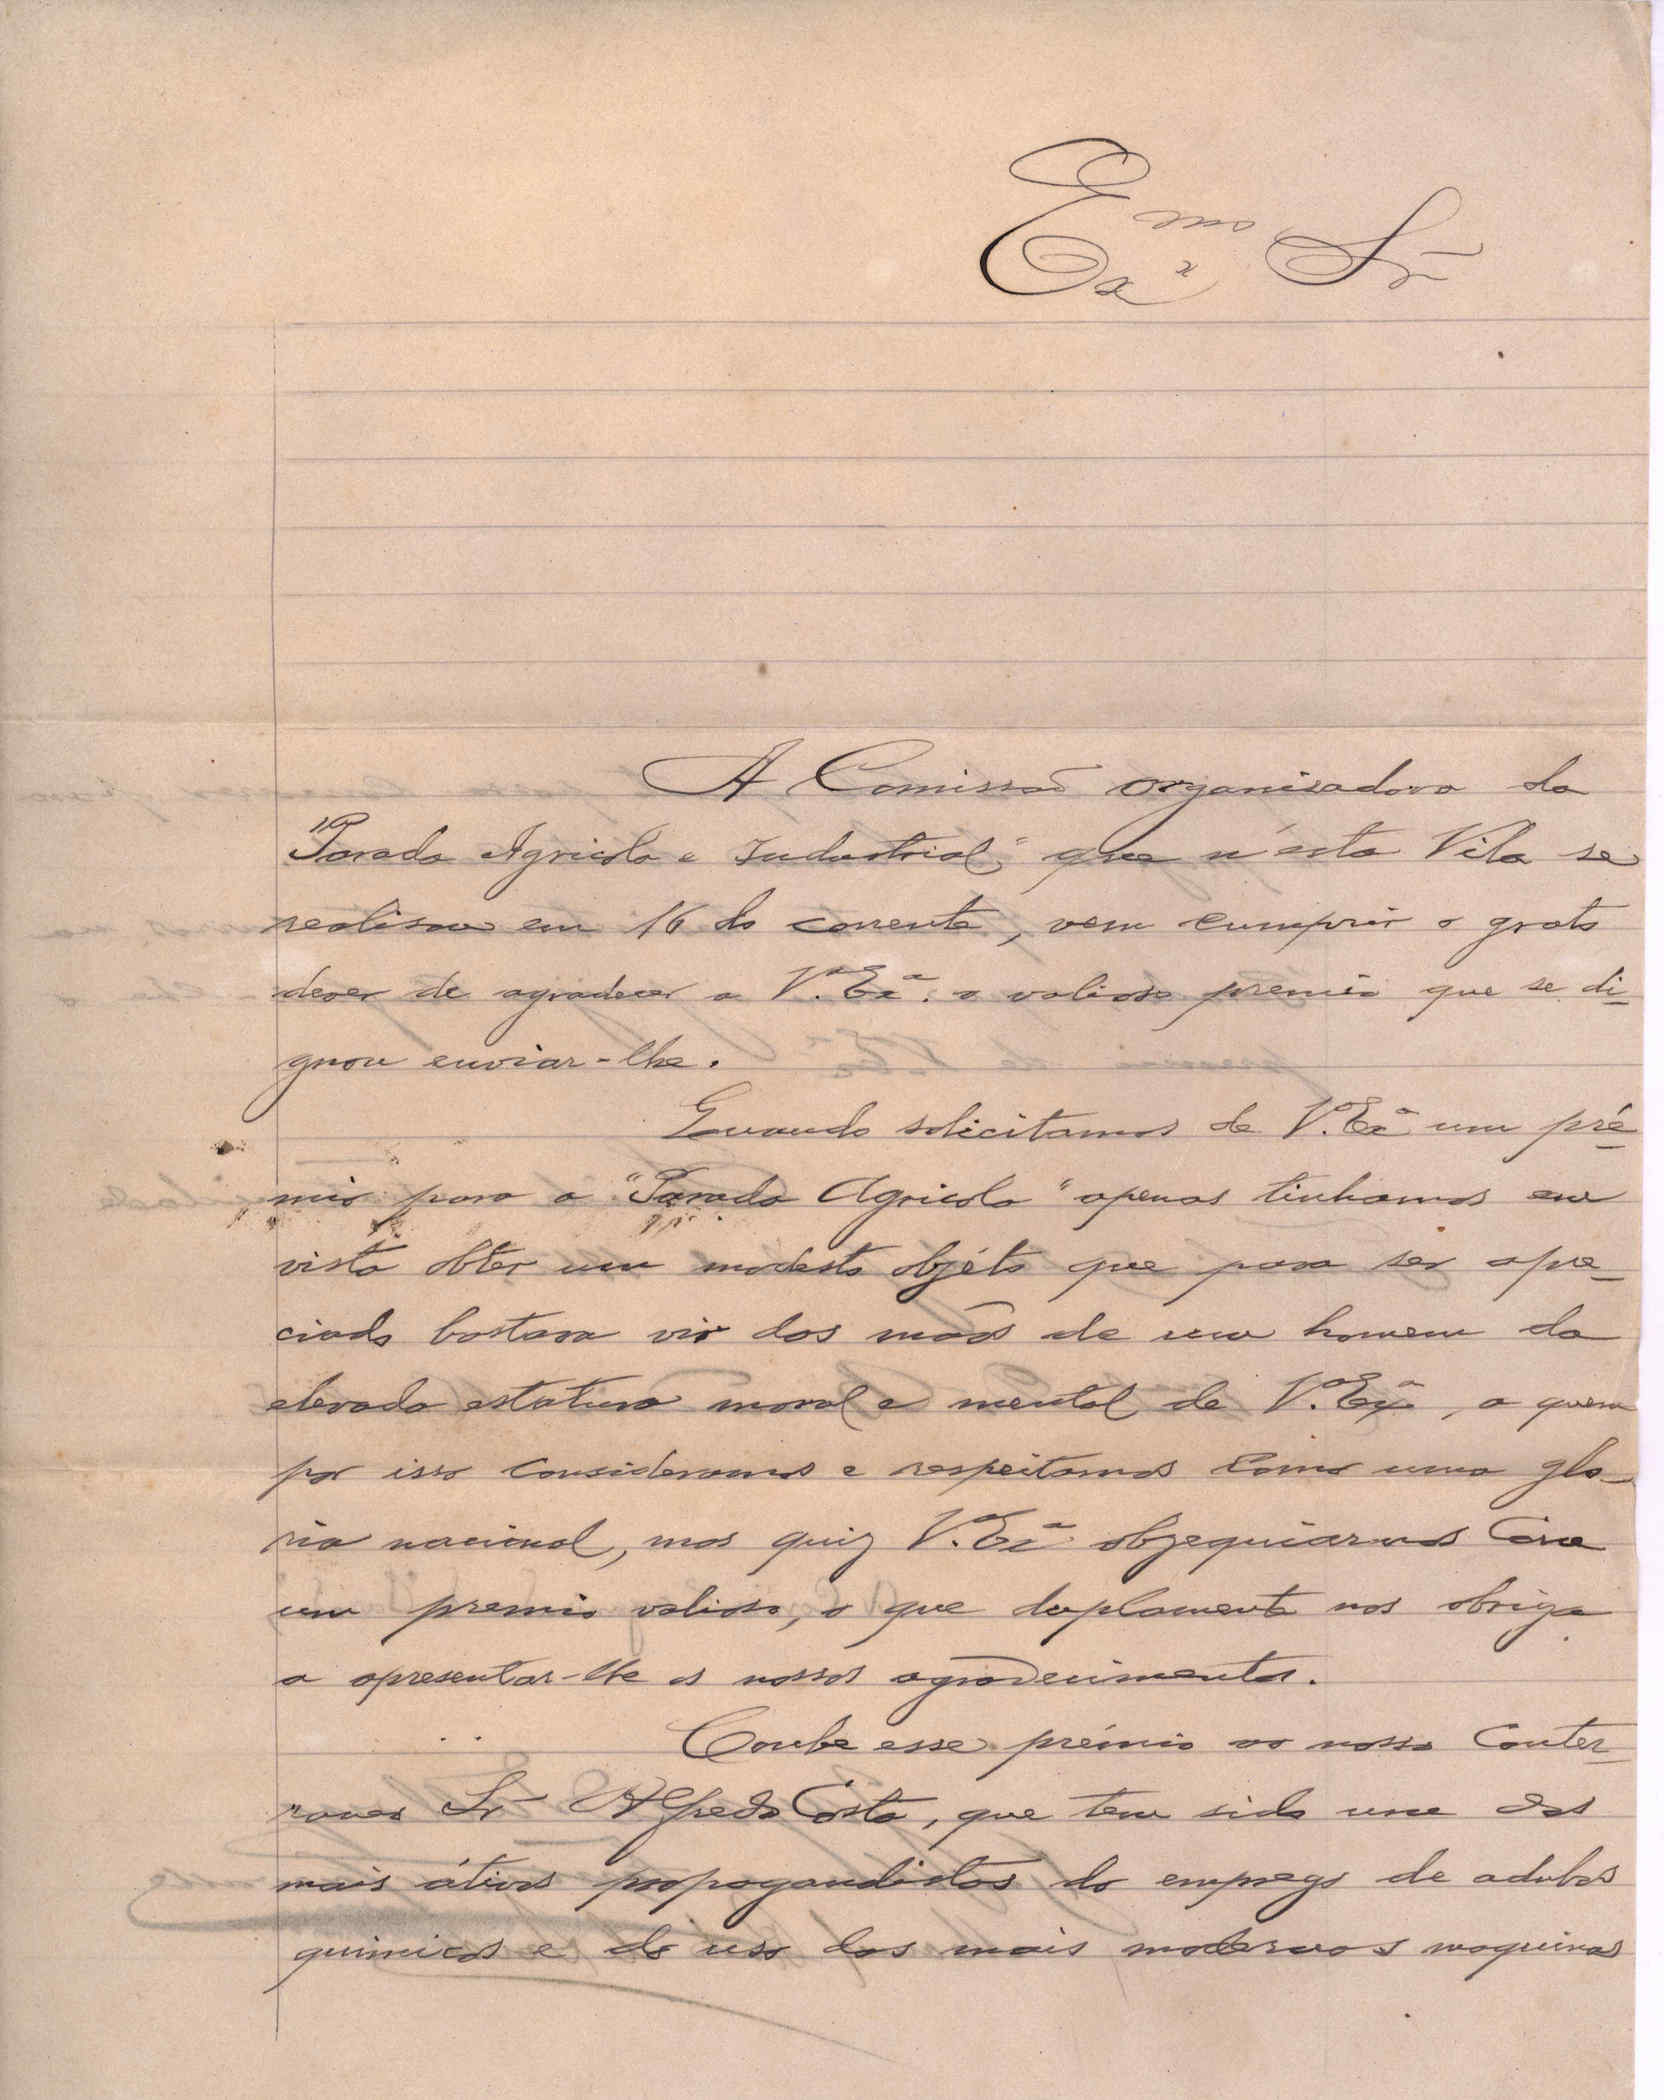 Exmo Snr
A Comissão organisadora da
"Parada Agricola e Industrial" que n'esta Vila se
realisou em 16 do corrente, vem cumprir o grato
dever de agradecer a V.ª Ex.ª o valioso premio que se di-
gnou enviar-lhe.
Quando solicitamos de V.ª Ex.ª um pré-
mio para a "Parada Agricola" apenas tinhamos em
vista obter um modesto objéto que para ser apre-
ciado bastava vir das mãos de um homem da
elevada estatura moral e mental de V.ª Ex.ª, a quem
por isso consideramos e respeitamos como uma glo-
ria nacional, mas quiz V.ª Ex.ª obzequiar-nos com
um premio valioso, o que duplamente nos obriga
a apresentar-lhe os nossos agradecimentos.
Coube esse prémio ao nosso conter-
raneo Snr Alfredo Costa, que tem sido um dos
mais átivos propagandistas do emprego de adubos
quimicos e do uso das mais modernas maquinas